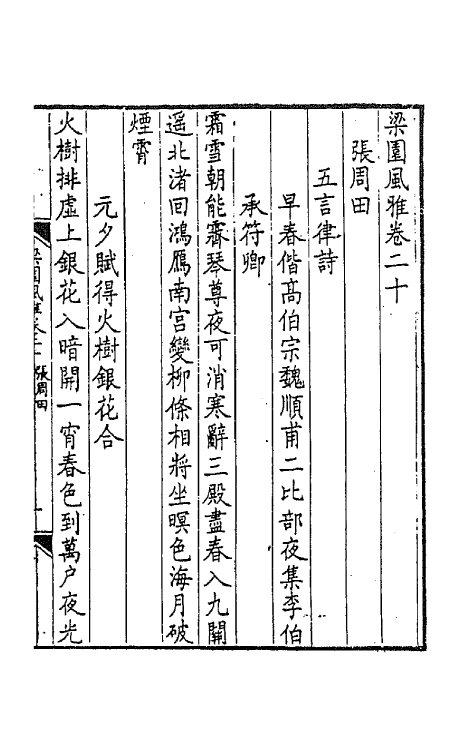 梁園風雅卷二十
張周田
五言律詩
早春偕高伯宗魏順甫二比部夜集李伯
承符卿
霜雪朝能霽琴尊夜可消寒辭三殿盡春入九關
遥北渚回鴻鴈南宫變柳條相將坐暝色海月破
煙霄
元夕賦得火樹銀花合
火樹排虛上銀花入暗開一宵春色到萬户夜光
梁園風雅卷二十 張周田 一